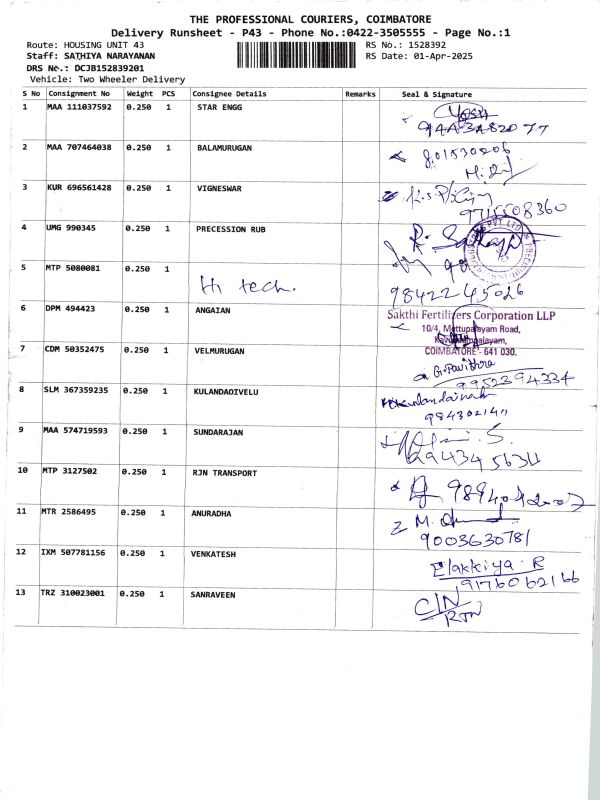 THE PROFESSIONAL COURIERS, COIMBATORE
Delivery Runsheet - P43 - Phone No.:0422-3505555 - Page No.:1
Route: HOUSING UNIT 43 RS No.: 1528392
Staff: SATHIYA NARAYANAN RS Date: 01-Apr-2025
DRS No.: DCJB152839201
Vehicle: Two Wheeler Delivery
S No Consignment No Weight PCS Consignee Details Remarks Seal & Signature
1 MAA 111037592 0.250 1 STAR ENGG
2 MAA 707464038 0.250 1 BALAMURUGAN
3 KUR 696561428 0.250 1 VIGNESWAR
9715508360
4 UMG 990345 0.250 1 PRECESSION RUB
5 MTP 5080081 0.250 1 Hi tech.
98422 45026
6 DPM 494423 0.250 1 ANGAIAN Sakthi Fertilizers Corporation LLP
10/4, Mettupalayam Road,
Kavundampalayam,
COIMBATORE - 641 030.
7 CDM 50352475 0.250 1 VELMURUGAN G. Pavithra
9952394334
8 SLM 367359235 0.250 1 KULANDAOIVELU
9 MAA 574719593 0.250 1 SUNDARAJAN
10 MTP 3127502 0.250 1 RJN TRANSPORT
11 MTR 2586495 0.250 1 ANURADHA
9003630781
12 IXM 507781156 0.250 1 VENKATESH Elakkiya. R
9176062166
13 TRZ 310023001 0.250 1 SANRAVEEN C/N
RTN